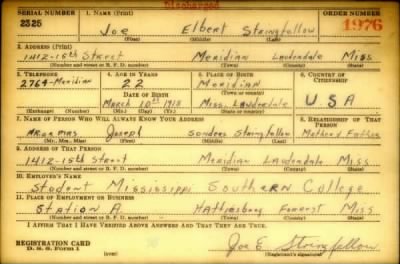 Discharged
SERIAL NUMBER 1. NAME (Print) ORDER NUMBER
2525 Joe Elbert Stringfellow 1976
(First) (Middle) (Last)
2. ADDRESS (Print)
1412-15th Street Meridian Lauderdale Miss
(Number and street or R. F. D. number) (Town) (County) (State)
3. TELEPHONE 4. AGE IN YEARS 5. PLACE OF BIRTH 6. COUNTRY OF CITIZENSHIP
2764-Meridian 22 Meridian
DATE OF BIRTH (Town or county)
March 10th 1918 Miss. Lauderdale U S A
(Exchange) (Number) (Mo.) (Day) (Yr.) (State or country)
7. NAME OF PERSON WHO WILL ALWAYS KNOW YOUR ADDRESS 8. RELATIONSHIP OF THAT PERSON
Mr or Mrs Joseph Sanders Stringfellow Mother & Father
(Mr., Mrs., Miss) (First) (Middle) (Last)
9. ADDRESS OF THAT PERSON
1412-15th Street Meridian Lauderdale Miss
(Number and street or R. F. D. number) (Town) (County) (State)
10. EMPLOYER'S NAME
Student Mississippi Southern College
11. PLACE OF EMPLOYMENT OR BUSINESS
Station A Hattiesburg Forrest Miss
(Number and street or R. F. D. number) (Town) (County) (State)
I AFFIRM THAT I HAVE VERIFIED ABOVE ANSWERS AND THAT THEY ARE TRUE.
REGISTRATION CARD Joe E. Stringfellow
D. S. S. Form 1 (over) (Registrant's signature)